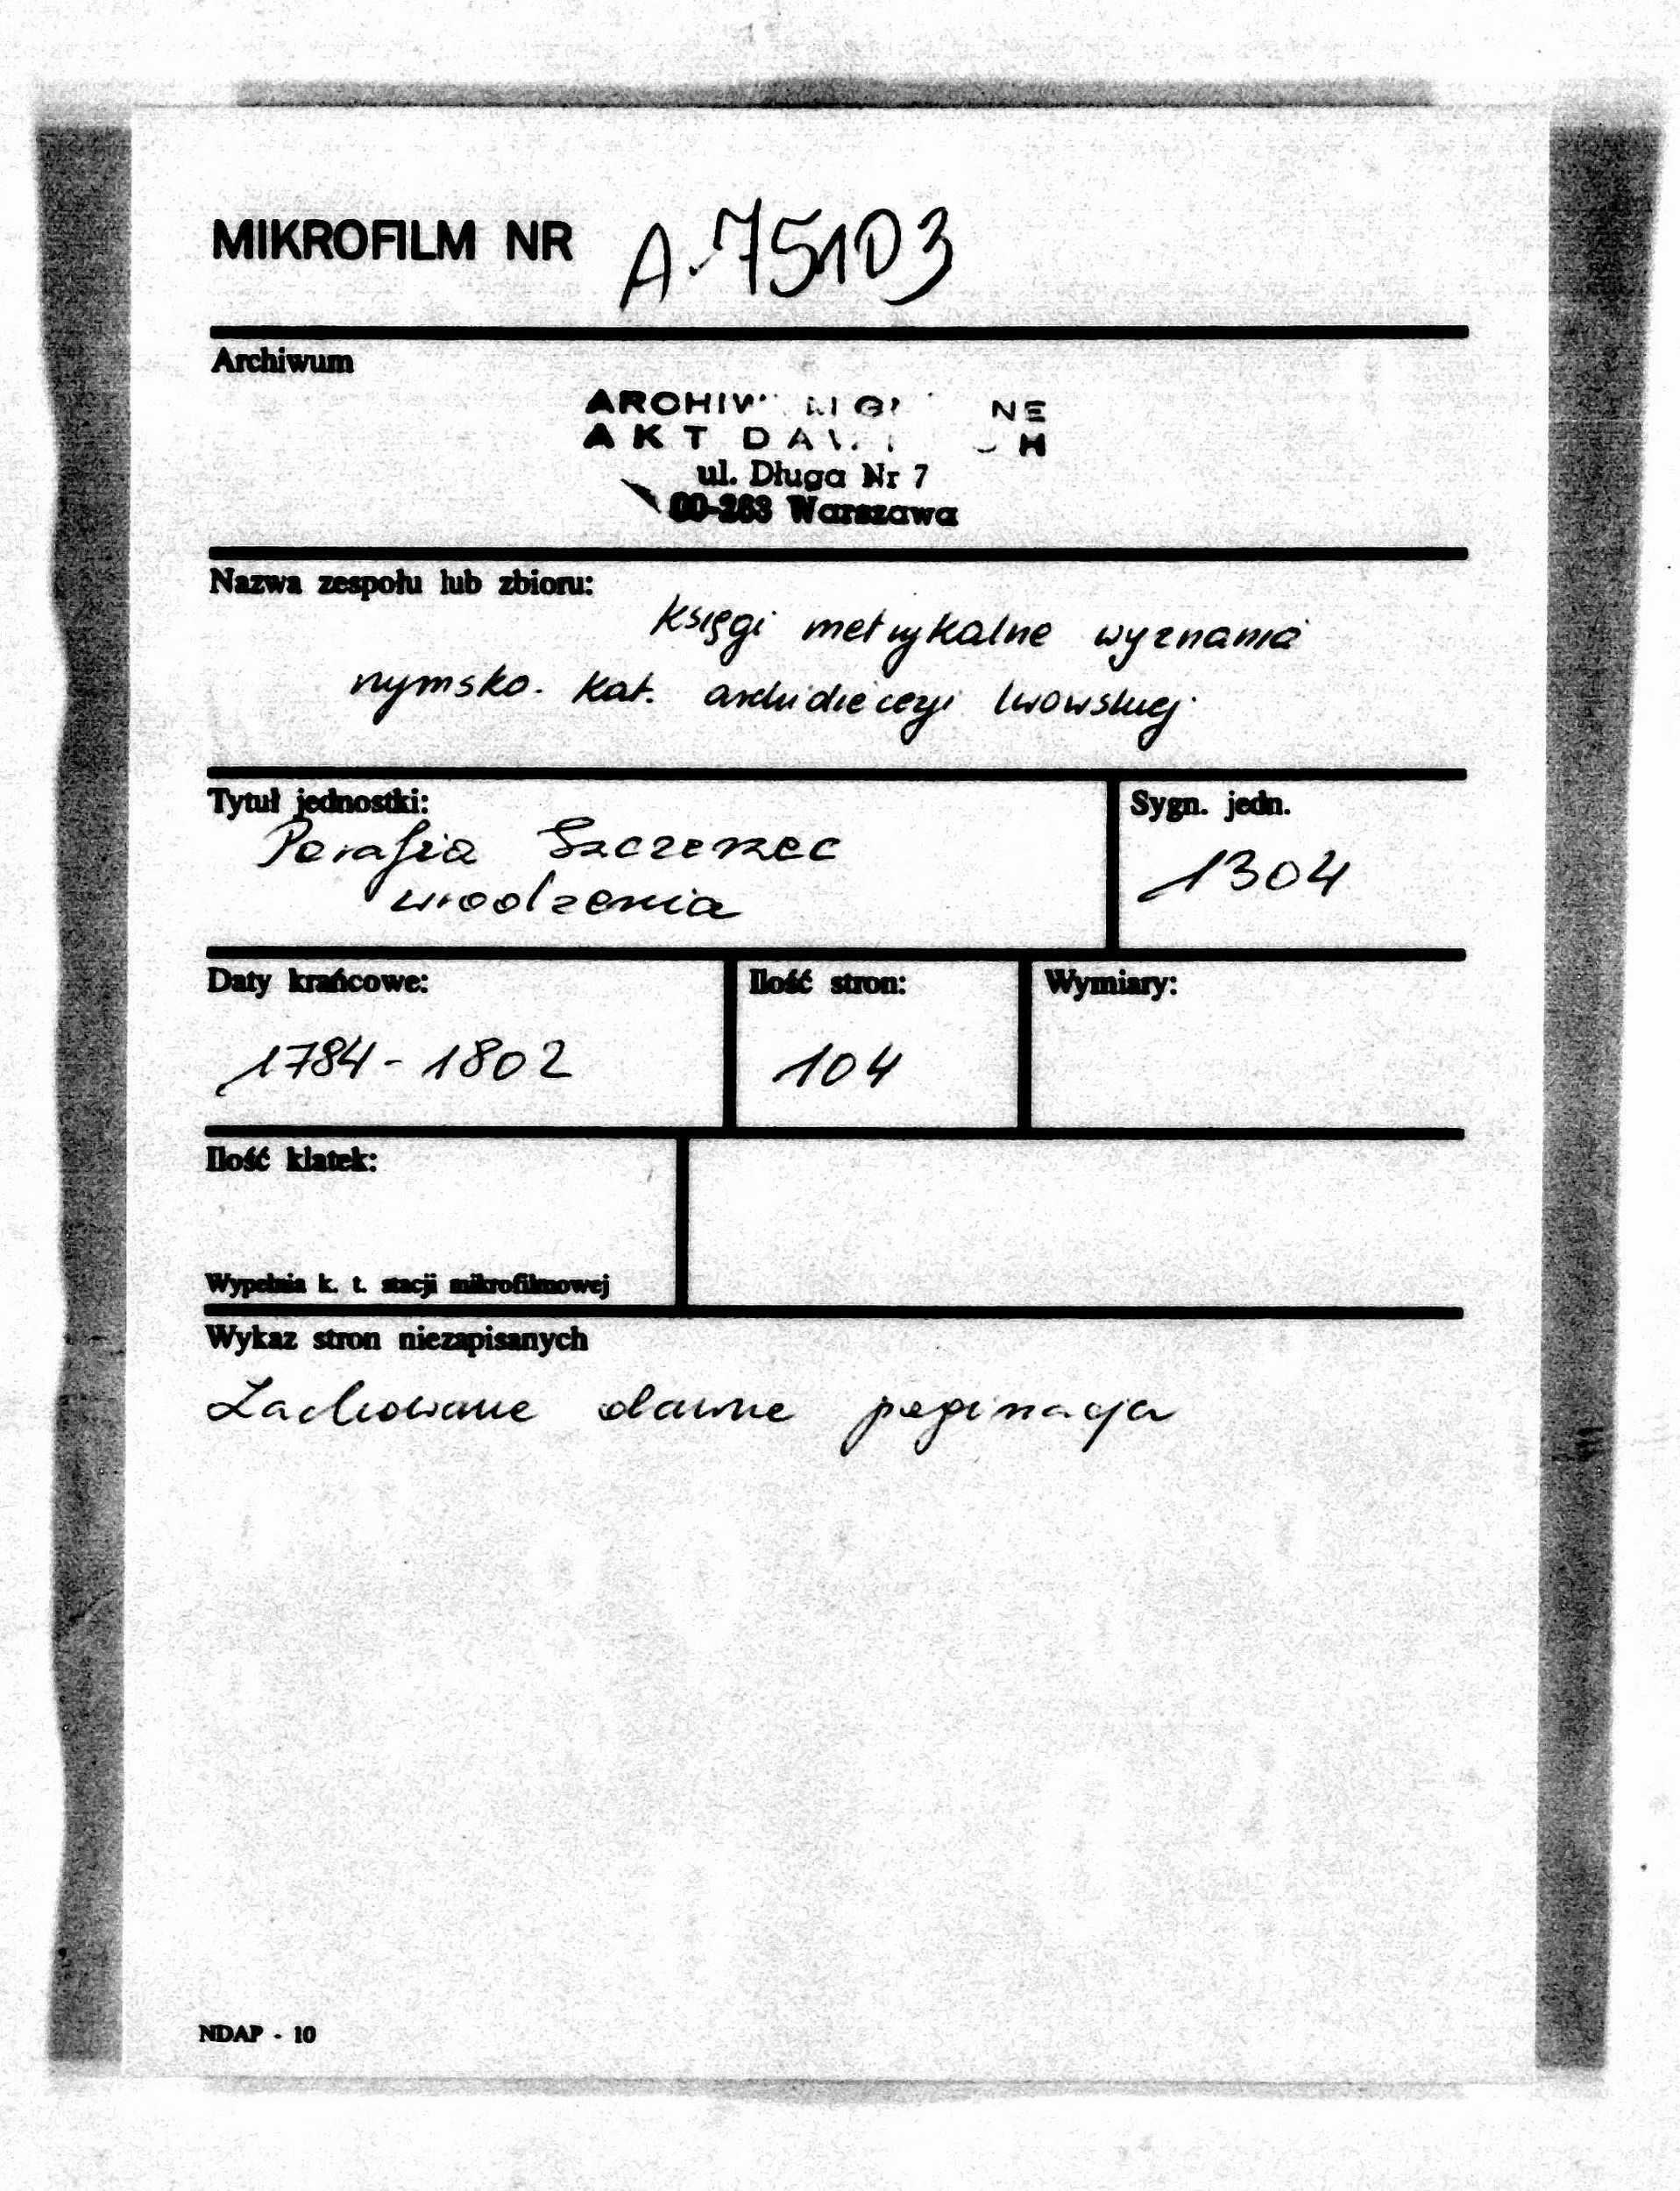 MIKROFILM NR A-75103
Archiwum
ARCHIW
AKT
ul. Długa Nr 7
00-263 Warszawa
Nazwa zespołu lub zbioru:
Księgi metrykalne wyznania
rzymsko. kat. archidiecezji lwowskiej
Tytuł jednostki:
Parafia Szczerzec
urodzenia
Sygn. jedn.
1304
Daty krańcowe:
1784 - 1802
Ilość stron:
104
Wymiary:
Ilość klatek:
Wypełnia k. t. stacji mikrofilmowej
Wykaz stron niezapisanych
Zachowane dawne paginacja
NDAP - 10